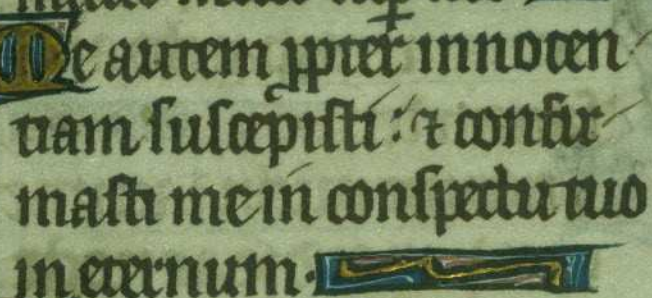 Me autem ꝓpter innocen
tiam suscepisti : ⁊ confir
masti me in conspectu tuo
in eternum .